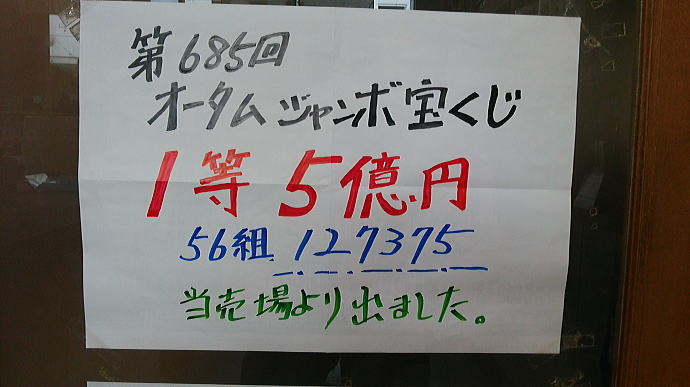 第685回
オータムジャンボ宝くじ
1等 5億円
56組 127375
当売場より出ました。